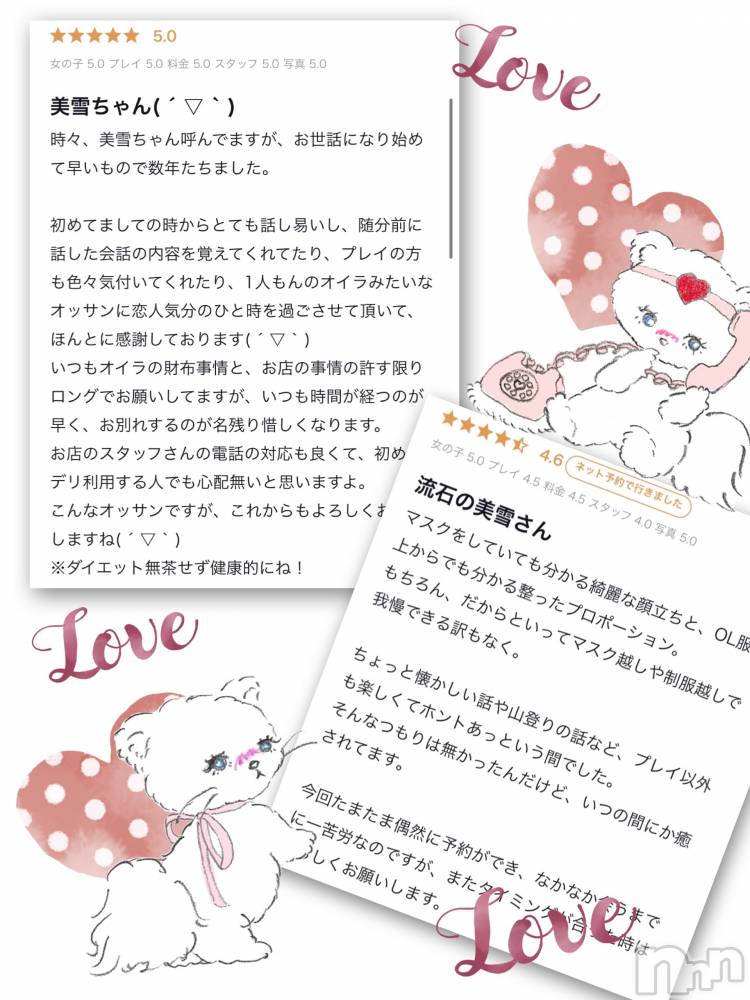 ★★★★★ 5.0
女の子 5.0 プレイ 5.0 料金 5.0 スタッフ 5.0 写真 5.0
美雪ちゃん(´▽｀)
時々、美雪ちゃん呼んでますが、お世話になり始め
て早いもので数年たちました。
初めてましての時からとても話し易いし、随分前に
話した会話の内容を覚えてくれてたり、プレイの方
も色々気付いてくれたり、1人もんのオイラみたいな
オッサンに恋人気分のひと時を過ごさせて頂いて、
ほんとに感謝しております(´▽｀)
いつもオイラの財布事情と、お店の事情の許す限り
ロングでお願いしてますが、いつも時間が経つのが
早く、お別れするのが名残り惜しくなります。
お店のスタッフさんの電話の対応も良くて、初め
デリ利用する人でも心配無いと思いますよ。
こんなオッサンですが、これからもよろしくお
しますね(´▽｀)
※ダイエット無茶せず健康的にね！
Love
4.6 ネット予約で行きました
女の子 5.0 プレイ 4.5 料金 4.5 スタッフ 4.0 写真 5.0
流石の美雪さん
マスクをしていても分かる綺麗な顔立ちと、OL服
上からでも分かる整ったプロポーション。
もちろん、だからといってマスク越しや制服越しで
我慢できる訳もなく。
ちょっと懐かしい話や山登りの話など、プレイ以外
も楽しくてホントあっという間でした。
そんなつもりは無かったんだけど、いつの間にか癒
されてます。
今回たまたま偶然に予約ができ、なかなか会うまで
に一苦労なのですが、またタイミングが合った時は
しくお願いします。
Love
Love
nnn